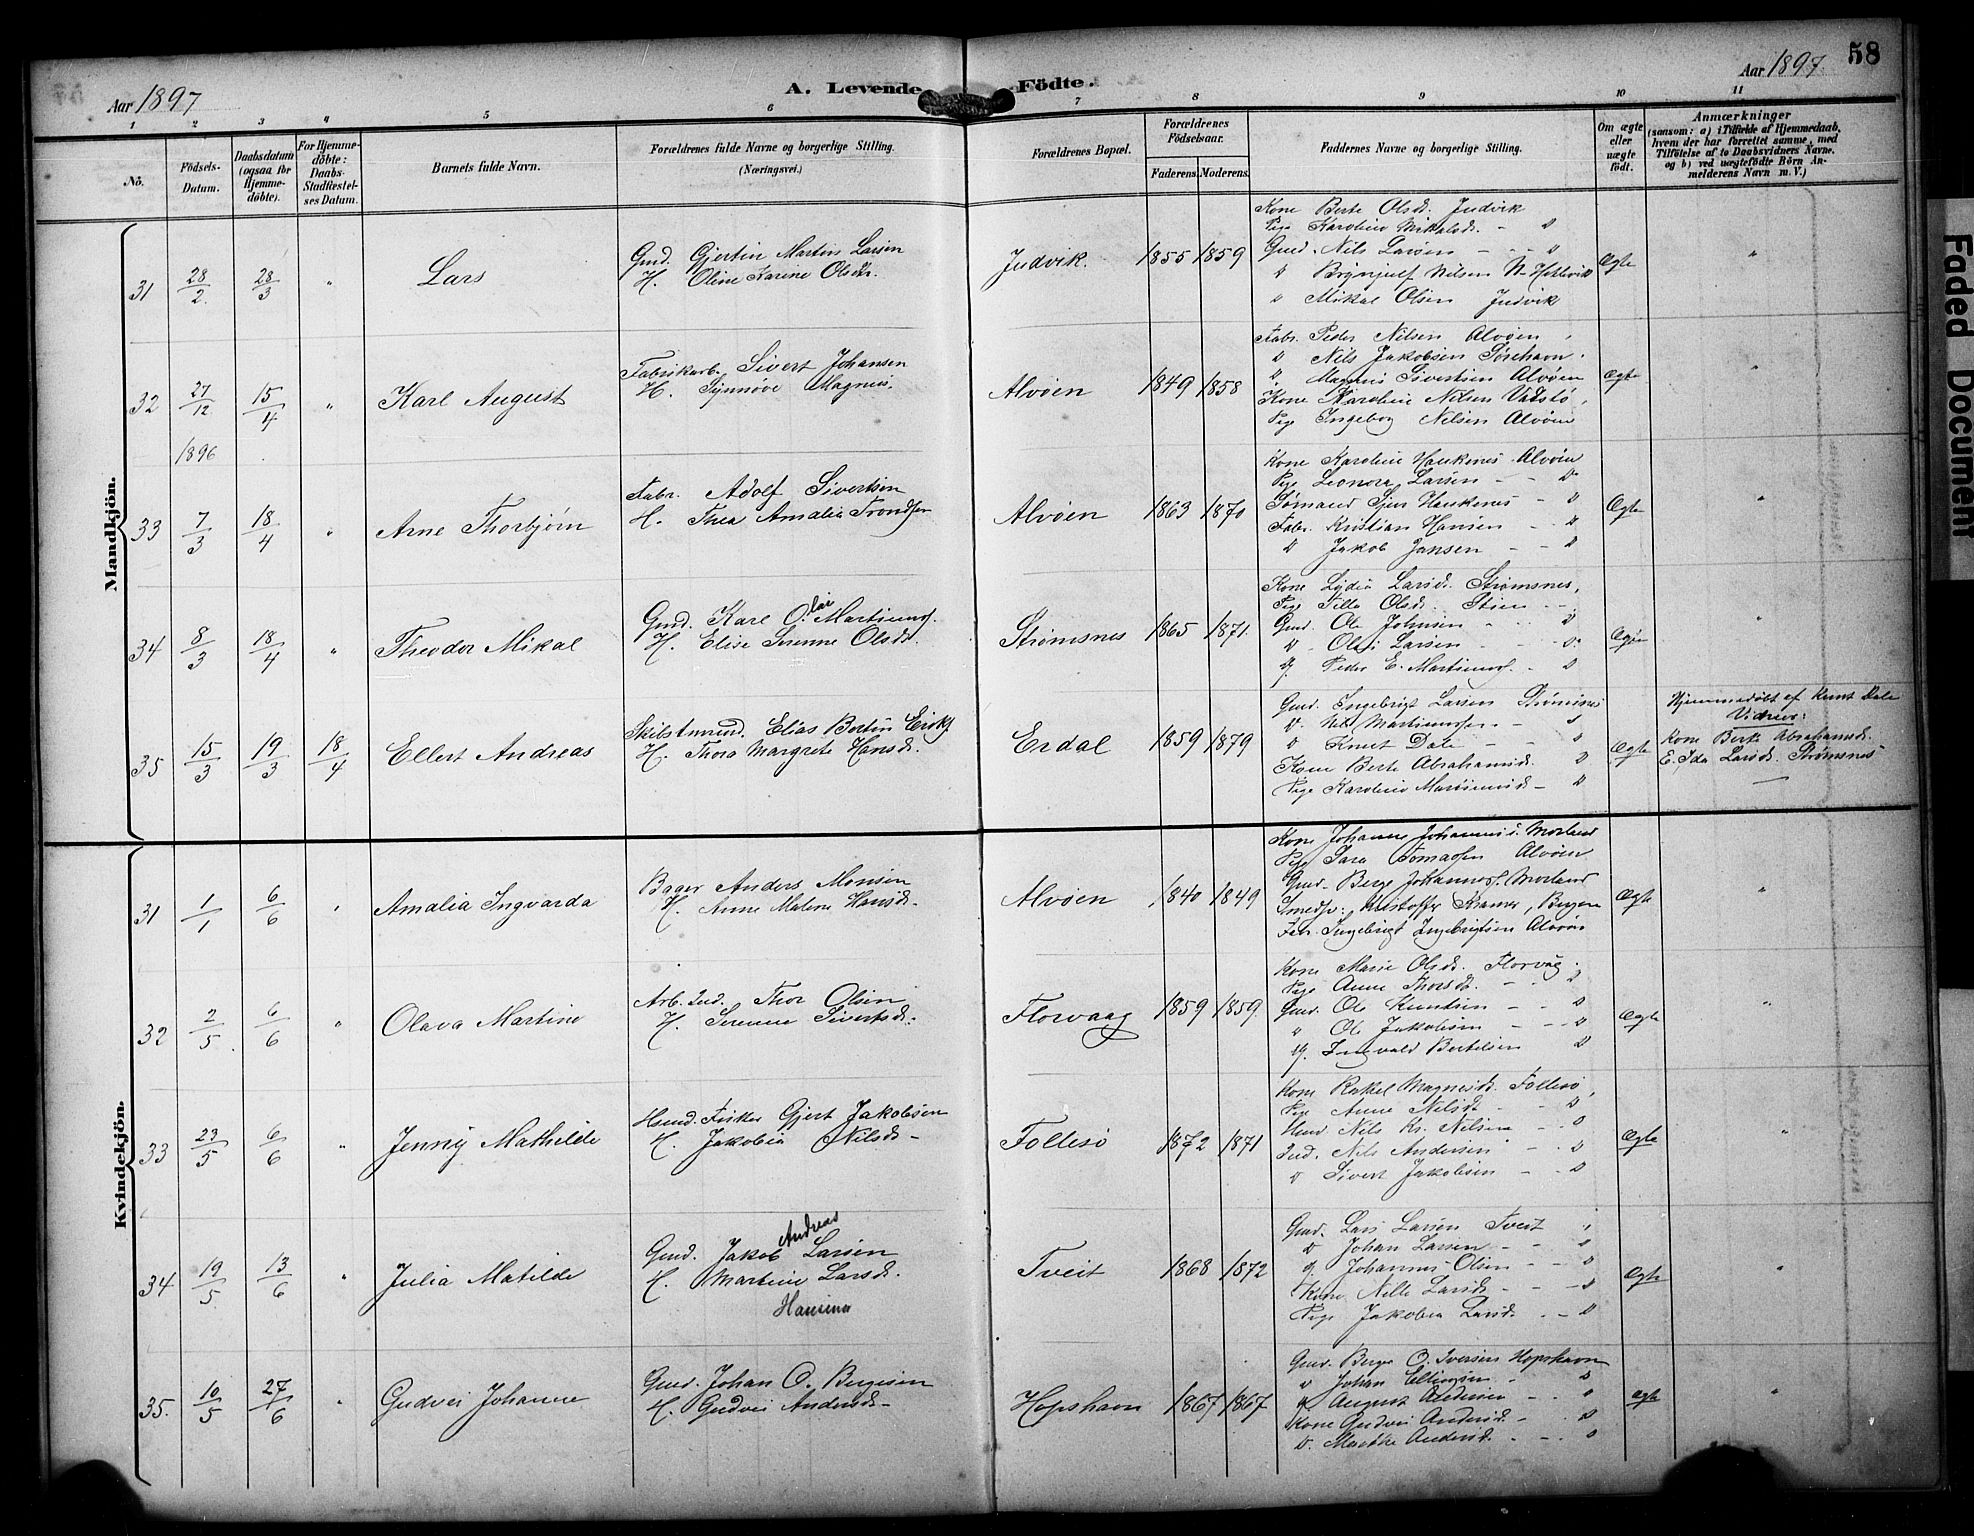 58
Aar 1897 A. Levende Födte. Aar 1897
1 2 3 4 5 6 7 8 9 10 11
No.
Födsels-Datum.
Daabsdatum (ogsaa for Hjemme-døbte).
For Hjemme-døbte: Daabs-Stadfæstel-ses Datum.
Barnets fulde Navn.
Forældrenes fulde Navne og borgerlige Stilling.
(Næringsvei.)
Forældrenes Bopæl.
Forældrenes Födselsaar.
Faderens. Moderens.
Faddernes Navne og borgerlige Stilling.
Om ægte eller uægte födt.
Anmærkninger
(saasom: a) i Tilfælde af Hjemmedaab, hvem der har forrettet samme, med Tilföielse af to Daabsvidners Navne, og b) ved uægtefödte Börn An-melderens Navn m. V.)
Mandkjön.
31 28/2 28/3 " Lars
Gmd. Gjertin Martin Larsen
H. Oline Karine Olsdtr.
Judvik. 1855 1859
Kone Berte Olsd. Judvik
Pige Karoline Mikalsd. - D
Gmd. Nils Larsen - - D
D Brynjulf Nilsen N-
" Mikal Olsen Judvik
Ægte "
32 27/12 1896 15/4 " Karl August
Fabrikarb. Sivert Johansen
H. Synnøve Magnus.
Alvøen 1849 1858
Fabr. Peder Nilsen Alvøen
D Nils Jakobsen Sørehavn
D Magnus Sivertsen Alvøen
Kone Karoline Nilsen
Pige Ingeborg Nilsen Alvøen
Ægte "
33 7/3 18/4 " Arne Thorbjørn
Fabr. Adolf Sivertsen
H. Thea Amalia Trondsen
Alvøen 1863 1870
Kone Karoline Haukenes Alvøen
Pige Leonora Larsen - - D
Sømand Sjur Haukenes - D
Fabr. Kristian Hansen - - D
D Jakob Jansen - - D
Ægte "
34 8/3 18/4 " Theodor Mikal
Gmd. Karl O.lai Martinus.
H. Elise Serenne Olsdt.
Strømsnes 1865 1871.
Kone Lydia Larsd. Strømsnes,
Pige Olsd. Stien - -
Gmd. Ole Johnsen - D
D Olai Larsen - - D.
Peder E. Martinus. - D
Ægte "
35 15/3 19/3 18/4 Ellert Andreas
Elias Bertin Eriks.
H. Thora Margrete Hansd.
Erdal 1859 1879
Gmd. Ingebrigt Larsen Strømsnes
D.
D Knut Dale - - D
Kone Berte Abrahamsd. D
Pige Karoline - D
Ægte
Hjemmedøbt af Knut Dale
Vidner:
Kone Berte Abrahamsd.
E. Ida Larsd. Strømsnes
Kvindekjön.
31 1/1 6/6 " Amalia Ingvarda
Bager Anders Monsen
H. Anne Malene Hansd.
Alvøen 1840 1849
Kone Johanne Morland
Pige Sara Tomassen Alvøen
Gmd. Berge Johannes. Morland
Kristoffer Kramer, Bergen
Fabr. Ingebrigt Ingebrigtsen Alvøen
Ægte "
32 2/5 6/6 " Olava Martine
Arb. Ind. Thor Olsen
H. Serenne Sivertsd.
Florvaag 1859 1859.
Kone Marie Olsd. Florvåg.
Pige Anne Thorsd. - - D
Gmd. Ole Knudsen - - D
" Ole Jakobsen - - D
Ingvald Bertilsen D
Ægte "
33 23/5 6/6 " Jenny Mathilde
Hmd. Fisker Gjert Jakobsen
H. Jakobia Nilsd-
Follesø 1872 1871
Kone Rakel Magnesd. Follesø,
Pige Anne Nilsd. - - D
Hmd. Nils Kr. Nilsen - . D
Ind. Nils Andersen - . D
D Sivert Jakobsen - - D
Ægte "
34 19/5 13/6 " Julia Matilde
Andreas
Gmd. Jakob Larsen
H. Martine Larsd.
Hansine
Tveit 1868 1872
Gmd. Lars Larsen Tveit
D Johan Larsen - - D
Johannes Olsen - - D
Kone Nille Larsd. - - D
Pige Jakobia Larsd. . - D
Ægte "
35. 10/5 27/6 " Gudvei Johanne
Gmd. Johan O. Bergesen
H. Gudvei Andersd-
Hopshavn 1867 1867
Gmd. Berge O. Iversen Hopshavn
D Johan Ellingsen - D
August Andersen - . D
Kone Gudvei Andersd. - . D
D. Andersd. - - . D
Ægte "
Faded Document